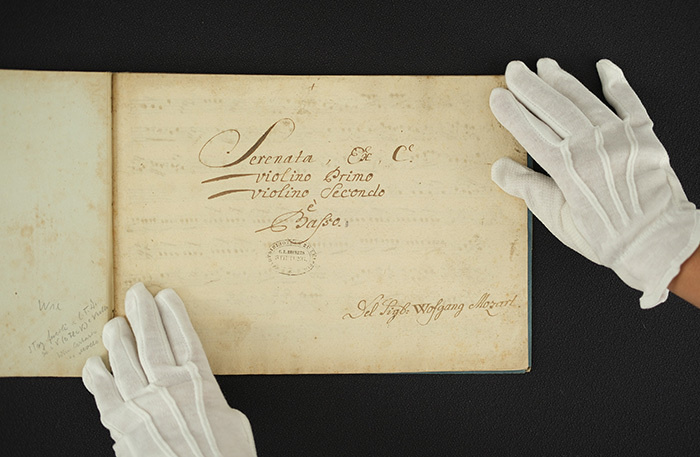 Serenata, Ex, C.
violino Primo
violino Secondo
è
Basso.
Del Sigr. Wofgang Mozart.